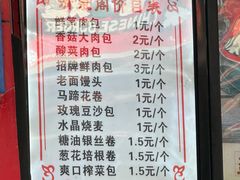 价目表
鲜笋肉包 1元/个
香菇大肉包 2元/个
酸菜肉包 2元/个
招牌鲜肉包 3元/个
老面馒头 1元/个
马蹄花卷 1元/个
玫瑰豆沙包 1元/个
水晶烧麦 1元/个
糖油银丝卷 1.5元/个
葱花培根卷 1.5元/个
爽口榨菜包 1.5元/个